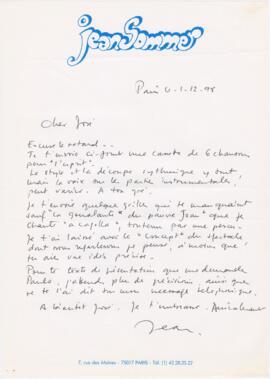 Jean Sommer
Paris le 1.12.98
Cher José
Excuse le retard...
Je t'envoie ci-joint une cassette de 6 chansons
pour "l'esprit".
Le style et la découpe rythmique y sont
mais la voix sur les parties instrumentales,
peut varier. A ton gré.
Je t'envoie quelques grilles qui te manquaient
sauf "la goualante du pauvre Jean" que je
chante "a capella", soutenu par une perçu.
Je t'ai laissé avec le "concept" du spectacle
dont nous reparlerons je pense, à moins que
tu aies une idée précise.
Pour le texte de présentation que me demande
Paulo, j'attends plus de précisions, ainsi que
je te l'ai dit sur mon message téléphonique.
A bientôt José. Je t'embrasse. Amicalement
Jean
7, rue des Moines - 75017 PARIS - Tél. (1) 42.28.25.22